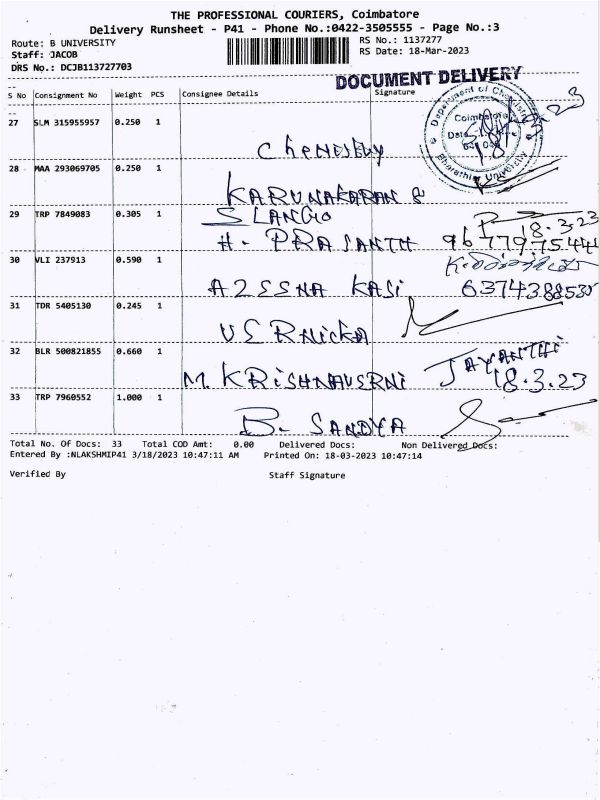 THE PROFESSIONAL COURIERS, Coimbatore
Delivery Runsheet - P41 - Phone No.:0422-3505555 - Page No.:3
Route: B UNIVERSITY
RS No.: 1137277
Staff: JACOB
RS Date: 18-Mar-2023
DRS No.: DCJB113727703
DOCUMENT DELIVERY
S No Consignment No Weight PCS Consignee Details Signature
27 SLM 315955957 0.250 1
Department of
Coimbatore
Bharathiar University
28 MAA 293069705 0.250 1
KARUNAKARAN S
29 TRP 7849083 0.305 1
SLANGO
18.3.23
H. PRASANTH
30 VLI 237913 0.590 1
KASI
31 TDR 5405130 0.245 1
32 BLR 500821855 0.660 1
JAYANTHI
M. 18.3.23
33 TRP 7960552 1.000 1
B. SANDYA
Total No. Of Docs: 33 Total COD Amt: 0.00 Delivered Docs: Non Delivered Docs:
Entered By :NLAKSHMIP41 3/18/2023 10:47:11 AM Printed On: 18-03-2023 10:47:14
Verified By Staff Signature